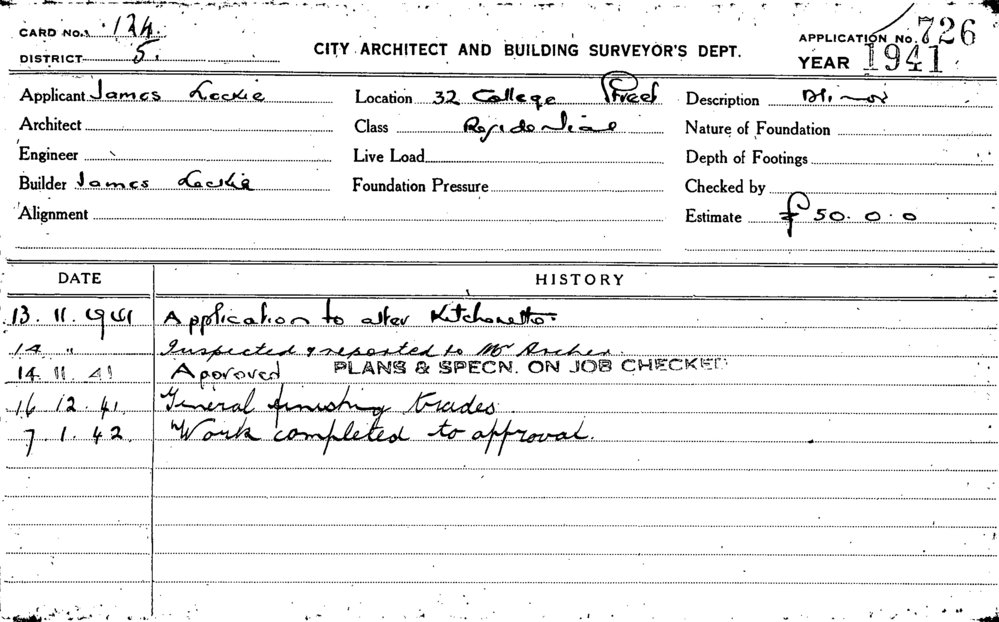 CARD No. 124.
DISTRICT 5.
CITY ARCHITECT AND BUILDING SURVEYOR'S DEPT.
APPLICATION No. 726
YEAR 1941
Applicant James Leckie Location 32 College Street Description Minor
Architect Class Residential Nature of Foundation
Engineer Live Load Depth of Footings
Builder James Leckie Foundation Pressure Checked by
Alignment Estimate £50.0.0
DATE HISTORY
13.11.1941 Application to alter Kitchenette.
14 " Inspected & reported to Mr Archer.
14 11 41 Approved PLANS & SPECN. ON JOB CHECKED
16 12.41. General finishing trades.
7.1.42. Work completed to approval.